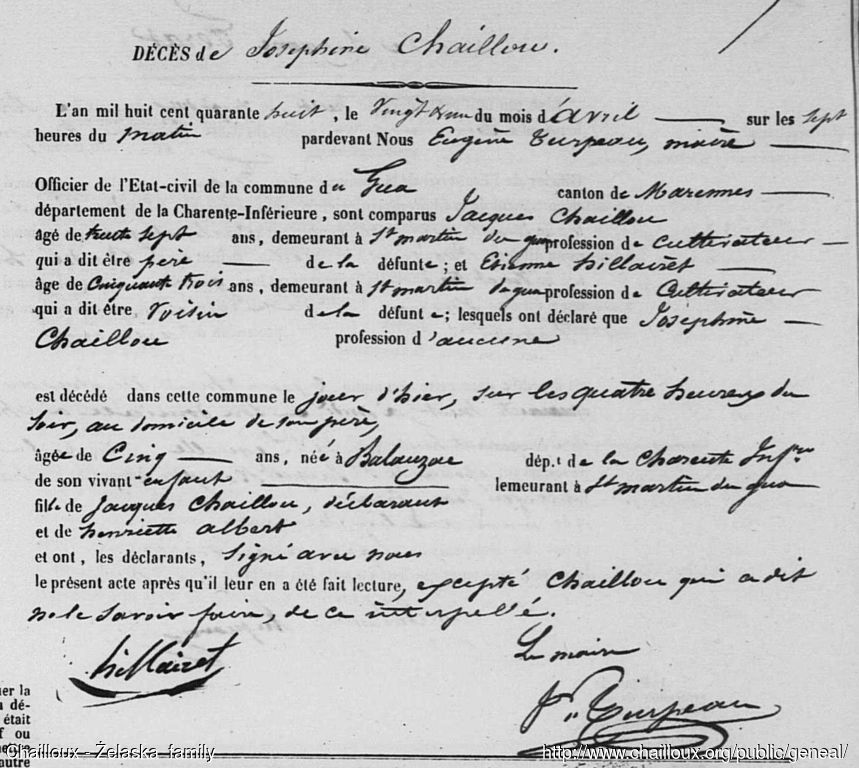 DÉCÈS de Josephine Chaillou.
L'an mil huit cent quarante huit, le Vingt & un du mois d'avril sur les sept
heures du matin pardevant Nous Eugène Turpeau, maire
Officier de l'Etat-civil de la commune du Gua canton de Marennes
département de la Charente-Inférieure, sont comparus Jacques Chaillou
âgé de trente sept ans, demeurant à St martin du gua profession de Cultivateur
qui a dit être père de la défunte; et Etienne hillairet
âge de Cinquante trois ans, demeurant à St martin du gua profession de Cultivateur
qui a dit être Voisin de la défunte; lesquels ont déclaré que Josephine
Chaillou profession d'aucune
est décédé dans cette commune le jour d'hier, sur les quatre heures du
soir, au domicile de son père,
âgée de Cinq ans, née à Balanzac dép.t de la Charente Infre
de son vivant enfant demeurant à St martin du gua
fille de Jacques Chaillou, déclarant
et de henriette albert
et ont, les déclarants, signé avec nous
le présent acte après qu'il leur en a été fait lecture, excepté Chaillou qui a dit
ne le savoir faire, de ce interpellé.
hillairet
Le maire
Turpeau
uer la
dé-
était
f ou
autre
Chailloux - Želaska family
http://www.chailloux.org/public/geneal/